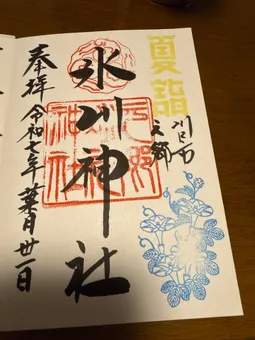 夏詣
川口市
元郷
氷川神社
奉拝 令和七年 葉月 丗一日
元郷
氷川
神社